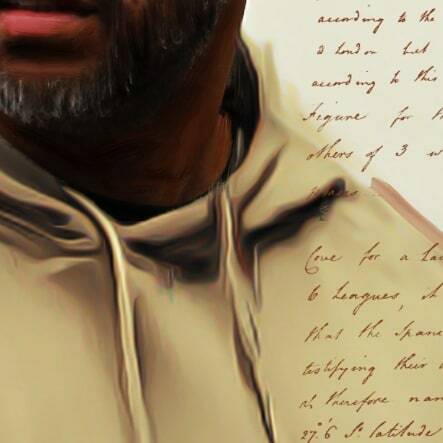 according to the
a London but
according to this
Figure for
others of 3
Cove for a
6 Leagues, it
that the Spane
testifying their
is therefore nam
27° 6' S. latitude